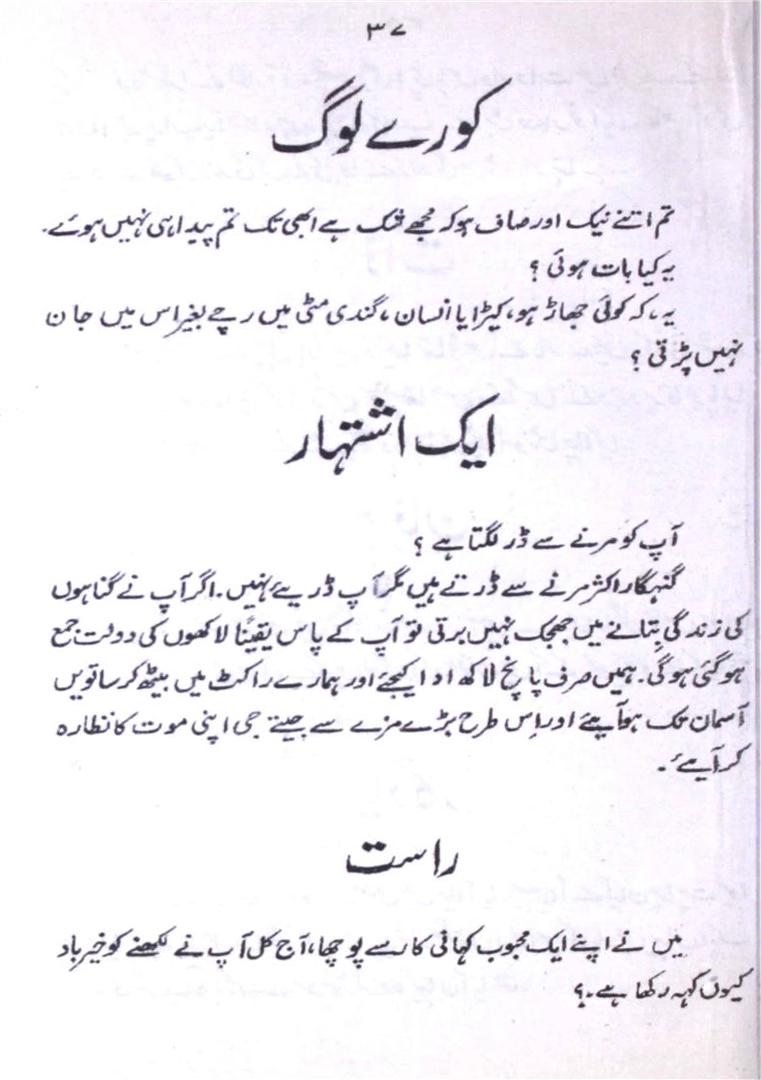 ۳۷
کورے لوگ
تم اتنے نیک اور صاف ہو کہ مجھے شک ہے ابھی تک تم پیدا ہی نہیں ہوئے۔
یہ کیا بات ہوئی ؟
یہ، کہ کوئی جھاڑ ہو، کیڑا یا انسان ، گندی مٹی میں رچے بغیر اس میں جان
نہیں پڑتی ؟
ایک اشتہار
آپ کو مرنے سے ڈر لگتا ہے ؟
گنہگار اکثر مرنے سے ڈرتے ہیں مگر آپ ڈریے نہیں۔ اگر آپ نے گناہوں
کی زندگی بِتانے میں جھجک نہیں برتی تو آپ کے پاس یقیناً لاکھوں کی دولت جمع
ہو گئی ہو گی۔ ہمیں صرف پانچ لاکھ ادا کیجئے اور ہمارے راکٹ میں بیٹھ کر ساتویں
آسمان تک ہو آیئے اور اِس طرح بڑے مزے سے جیتے جی اپنی موت کا نظارہ
کر آیئے ۔
راست
میں نے اپنے ایک محبوب کہانی کار سے پوچھا، آج کل آپ نے لکھنے کو خیر باد
کیوں کہہ رکھا ہے۔؟